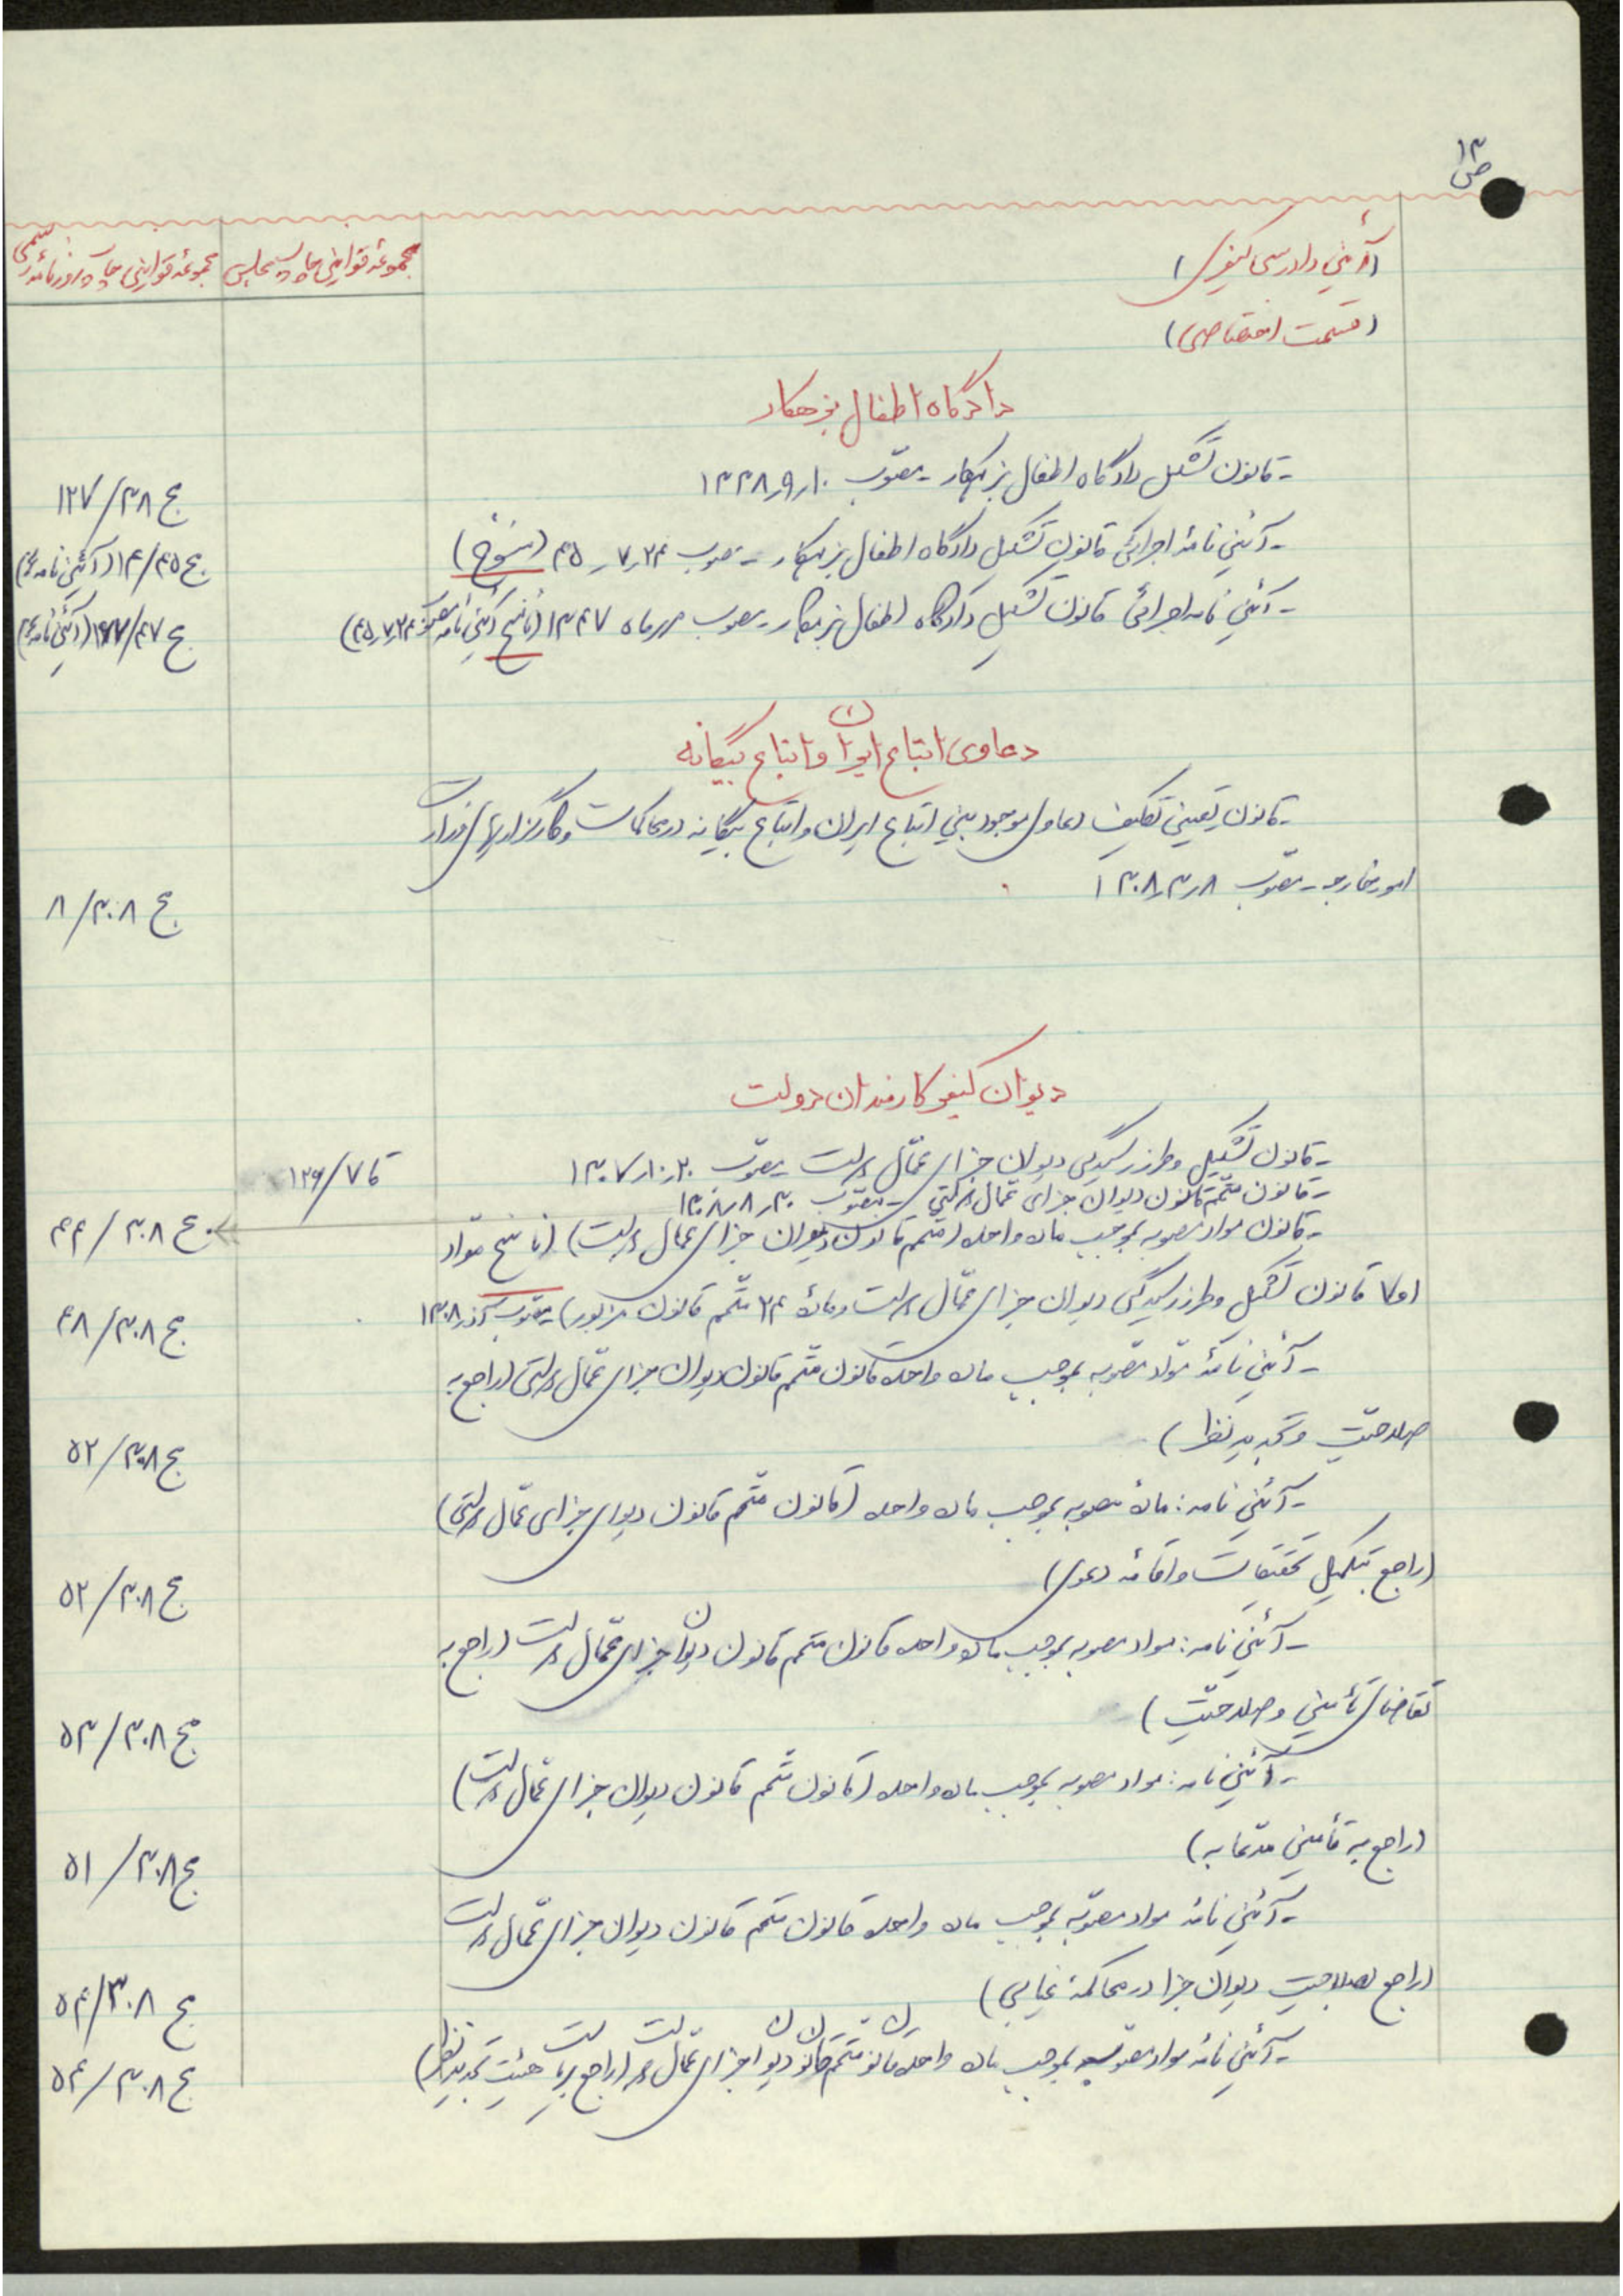 ص ۱۳
(آئین دادرسی کیفری)
(قسمت اختصاصی)
مجموعه قوانین چاپ مجلس
مجموعه قوانین چاپ روزنامه رسمی
دادگاه اطفال بزهکار
- قانون تشکیل دادگاه اطفال بزهکار - مصوّب ۱۰ر۹ر۱۳۳۸
ج ۳۸/۱۲۷
- آئین نامهٔ اجرائی قانون تشکیل دادگاه اطفال بزهکار - مصوب ۲۴ر۷ر۴۵ (منسوخ)
ج ۴۵/۱۴ (آئین نامه)
- آئین نامه اجرائی قانون تشکیل دادگاه اطفال بزهکار - مصوب مهرماه ۱۳۴۷ (ناسخ آئین نامه مصوب ۲۴ر۷ر۴۵)
ج ۴۷/ (آئین نامه)
دعاوی اتباع ایران و اتباع بیگانه
- قانون تعیین تکلیف دعاوی موجود بین اتباع ایران و اتباع بیگانه در محاکمات و کارگزاریهای وزارت
امور خارجه - مصوّب ۸ر۳ر۱۳۰۸
ج ۳۰۸/۸
دیوان کیفر کارمندان دولت
- قانون تشکیل و طرز رسیدگی دیوان جزای عمّال دولت مصوّب ۲۰ر۱۰ر۱۳۰۷
ق ۷/۱۲۶
- قانون متمّم قانون دیوان جزای عمّال دولتی - مصوّب ۳۰ر۸ر۱۳۰۸
ج ۳۰۸/۴۴
- قانون مواد مصوبه بموجب ماده واحده (متمم قانون دیوان جزای عمال دولت) (ناسخ موّاد
۱ و ۷ قانون تشکیل و طرز رسیدگی دیوان جزای عمّال دولت و مادهٔ ۲۴ متّمم قانون مزبور) مصوب آذر ۱۳۰۸
ج ۳۰۸/۴۸
- آئین نامهٔ موّاد مصّوبه بموجب ماده واحده قانون متّمم قانون دیوان جزای عمّال دولتی (راجع به
صلاحیّت و تجدید نظر)
ج ۳۰۸/۵۲
- آئین نامه: مادهٔ مصوبه بموجب ماده واحده (قانون متّمم قانون دیوان جزای عمّال دولتی)
(راجع بتکمیل تحقیقات و اقامه دعوی)
ج ۳۰۸/۵۲
- آئین نامه: مواد مصوبه بموجب ماده واحده قانون متمم قانون دیوان جزای عمّال دولت (راجع به
تقاضای تأمین و صلاحیّت)
ج ۳۰۸/۵۳
- آئین نامه: مواد مصوبه بموجب ماده واحده (قانون متّمم قانون دیوان جزای عمّال دولت)
(راجع به تأمین مدّعابه)
ج ۳۰۸/۵۱
- آئین نامهٔ مواد مصوّبه بموجب ماده واحده قانون متمم قانون دیوان جزای عمّال دولت
(راجع بصلاحیت دیوان جزا در محاکمهٔ غیابی)
ج ۳۰۸/۵۴
- آئین نامهٔ مواد مصوّبه بموجب ماده واحده قانون متمّم قانون دیوان جزای عمّال دولت (راجع بریاست هیئت تجدیدنظر)
ج ۳۰۸/۵۴